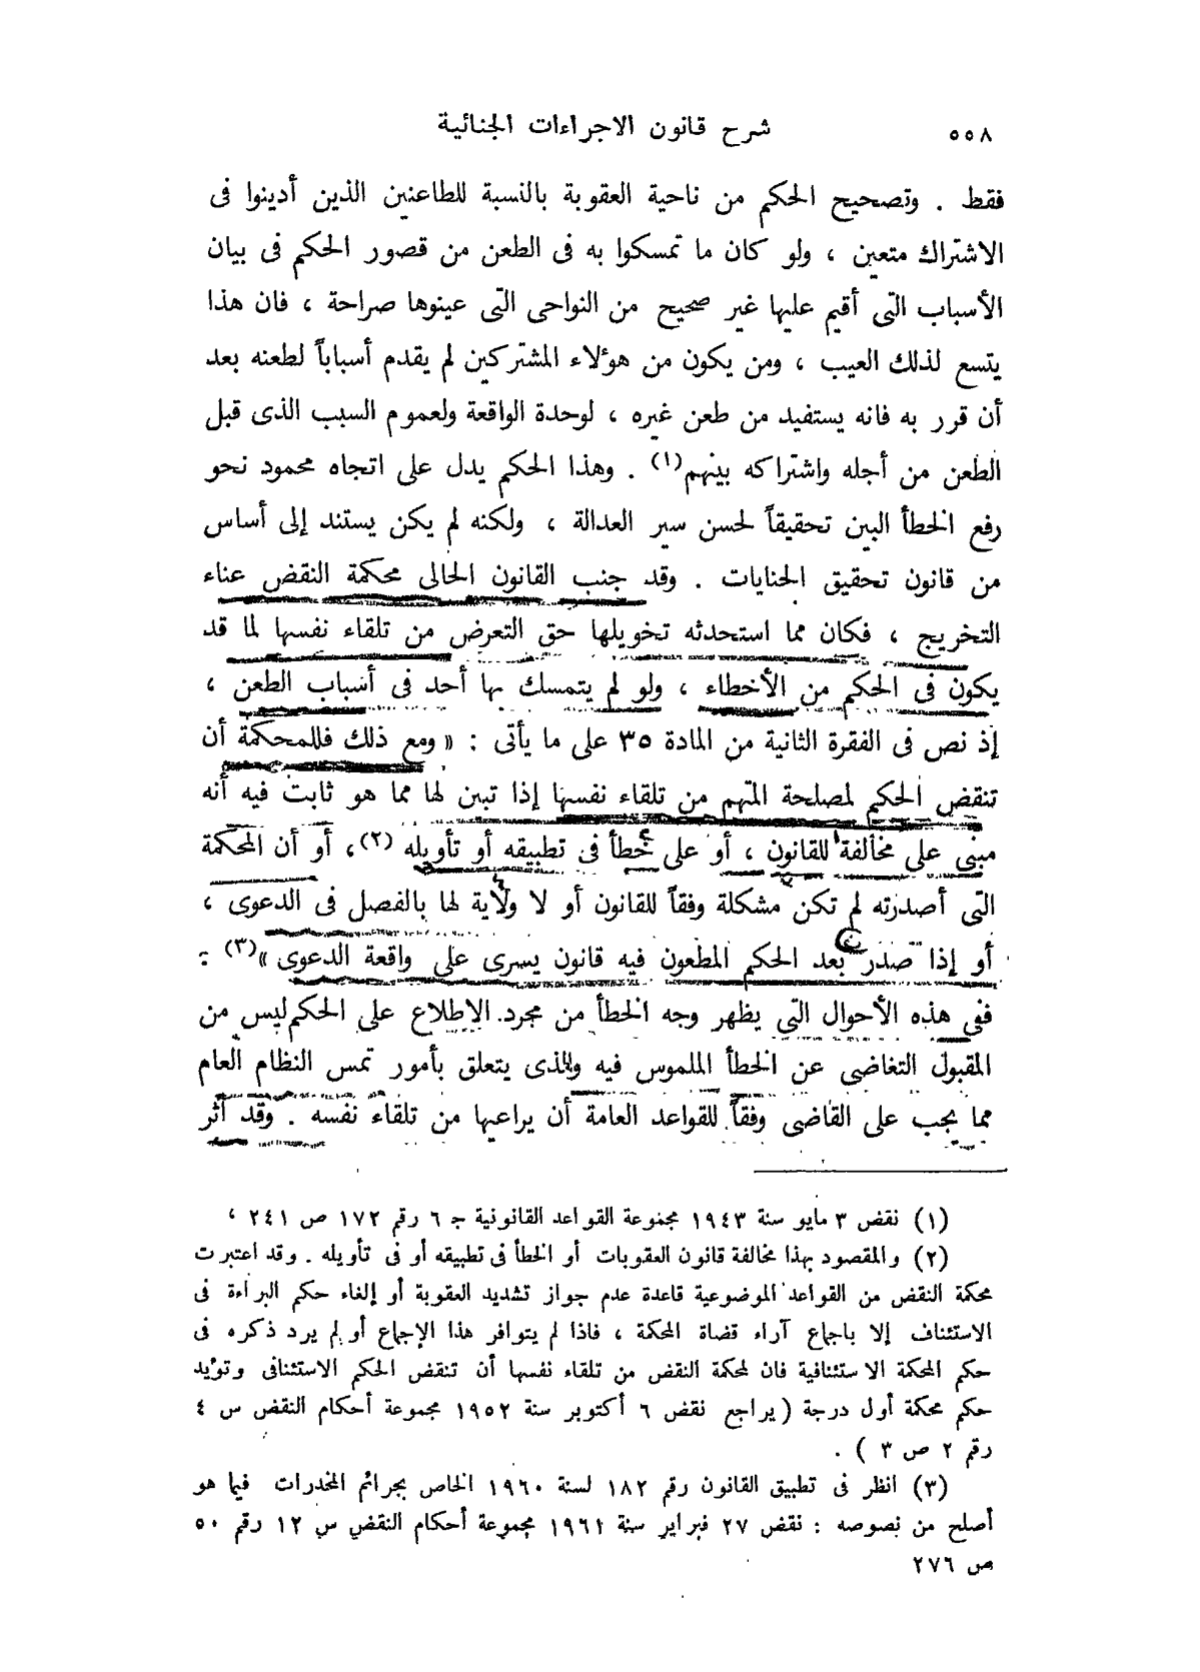 ٥٥٨
شرح قانون الاجراءات الجنائية
فقط . وتصحيح الحكم من ناحية العقوبة بالنسبة للطاعنين الذين أدينوا فى
الاشتراك متعين ، ولو كان ما تمسكوا به فى الطعن من قصور الحكم فى بيان
الأسباب التى أقيم عليها غير صحيح من النواحى التى عينوها صراحة ، فان هذا
يتسع لذلك العيب ، ومن يكون من هؤلاء المشتركين لم يقدم أسباباً لطعنه بعد
أن قرر به فانه يستفيد من طعن غيره ، لوحدة الواقعة ولعموم السبب الذى قبل
الطعن من أجله واشتراكه بينهم(١) . وهذا الحكم يدل على اتجاه محمود نحو
رفع الخطأ البين تحقيقاً لحسن سير العدالة ، ولكنه لم يكن يستند إلى أساس
من قانون تحقيق الجنايات . وقد جنب القانون الحالى محكمة النقض عناء
التخريج ، فكان مما استحدثه تخويلها حق التعرض من تلقاء نفسها لما قد
يكون فى الحكم من الأخطاء ، ولو لم يتمسك بها أحد فى أسباب الطعن ،
إذ نص فى الفقرة الثانية من المادة ٣٥ على ما يأتى : « ومع ذلك فللمحكمة أن
تنقض الحكم لمصلحة المتهم من تلقاء نفسها إذا تبين لها مما هو ثابت فيه أنه
مبنى على مخالفة للقانون ، أو على خطأ فى تطبيقه أو تأويله (٢)، أو أن المحكمة
التى أصدرته لم تكن مشكلة وفقاً للقانون أو لا ولاية لها بالفصل فى الدعوى ،
أو إذا صدر بعد الحكم المطعون فيه قانون يسرى على واقعة الدعوى »(٣) :
ففى هذه الأحوال التى يظهر وجه الخطأ من مجرد الإطلاع على الحكم ليس من
المقبول التغاضى عن الخطأ الملموس فيه والذى يتعلق بأمور تمس النظام العام
مما يجب على القاضى وفقاً للقواعد العامة أن يراعيها من تلقاء نفسه . وقد آثر
(١) نقض ٣ مايو سنة ١٩٤٣ مجموعة القواعد القانونية ج ٦ رقم ١٧٢ ص ٢٤١ ،
(٢) والمقصود بهذا مخالفة قانون العقوبات أو الخطأ فى تطبيقه أو فى تأويله . وقد اعتبرت
محكمة النقض من القواعد الموضوعية قاعدة عدم جواز تشديد العقوبة أو إلغاء حكم البراءة فى
الاستئناف إلا باجماع آراء قضاة المحكمة ، فاذا لم يتوافر هذا الإجماع أو لم يرد ذكره فى
حكم المحكمة الاستئنافية فان لمحكمة النقض من تلقاء نفسها أن تنقض الحكم الاستئنافى وتؤيد
حكم محكمة أول درجة ( يراجع نقض ٦ أكتوبر سنة ١٩٥٢ مجموعة أحكام النقض س ٤
رقم ٢ ص ٣ ) .
(٣) انظر فى تطبيق القانون رقم ١٨٢ لسنة ١٩٦٠ الخاص بجرائم المخدرات فيما هو
أصلح من نصوصه : نقض ٢٧ فبراير سنة ١٩٦١ مجموعة أحكام النقض س ١٢ رقم ٥٠
ص ٢٧٦